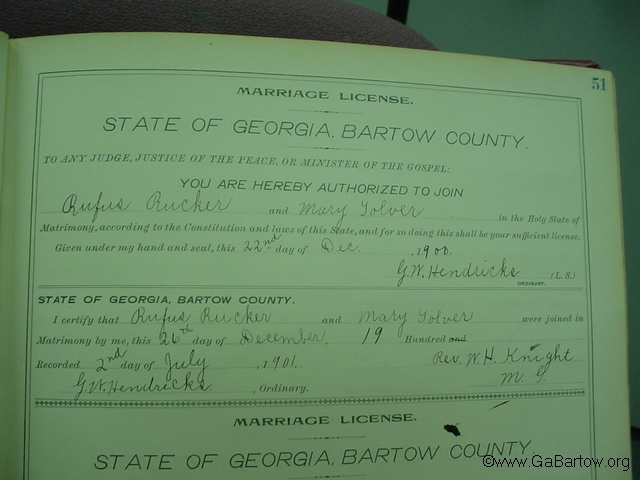 51
MARRIAGE LICENSE.
STATE OF GEORGIA, BARTOW COUNTY.
TO ANY JUDGE, JUSTICE OF THE PEACE, OR MINISTER OF THE GOSPEL:
YOU ARE HEREBY AUTHORIZED TO JOIN
Rufus Rucker and Mary Tolver in the Holy State of
Matrimony, according to the Constitution and laws of this State, and for so doing this shall be your sufficient license.
Given under my hand and seal, this 22nd day of Dec. , 1900.
G.W. Hendricks (L. S.)
ORDINARY.
STATE OF GEORGIA, BARTOW COUNTY.
I certify that Rufus Rucker and Mary Tolver were joined in
Matrimony by me, this 26th day of December, 19 Hundred and
Recorded 2nd day of July , 1901. Rev. W. H. Knight
G.W. Hendricks , Ordinary. M. G.
MARRIAGE LICENSE.
STATE OF GEORGIA, BARTOW COUNTY.
©www.GaBartow.org